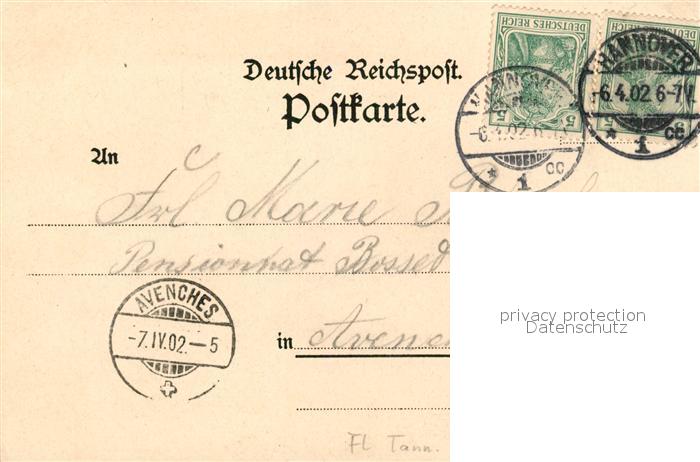 DEUTSCHES REICH DEUTSCHES REICH
5 5 5
HANNOVER
-6.4.02. 6-7V.
* 1 cc
HANNOVER
-6.4.02
* 1 cc
Deutsche Reichspost.
Postkarte.
An
Frl Marie
Pensionnat Bossed
in Avenc
AVENCHES
-7.IV.02.-5
privacy protection
Datenschutz
Fl Tann.